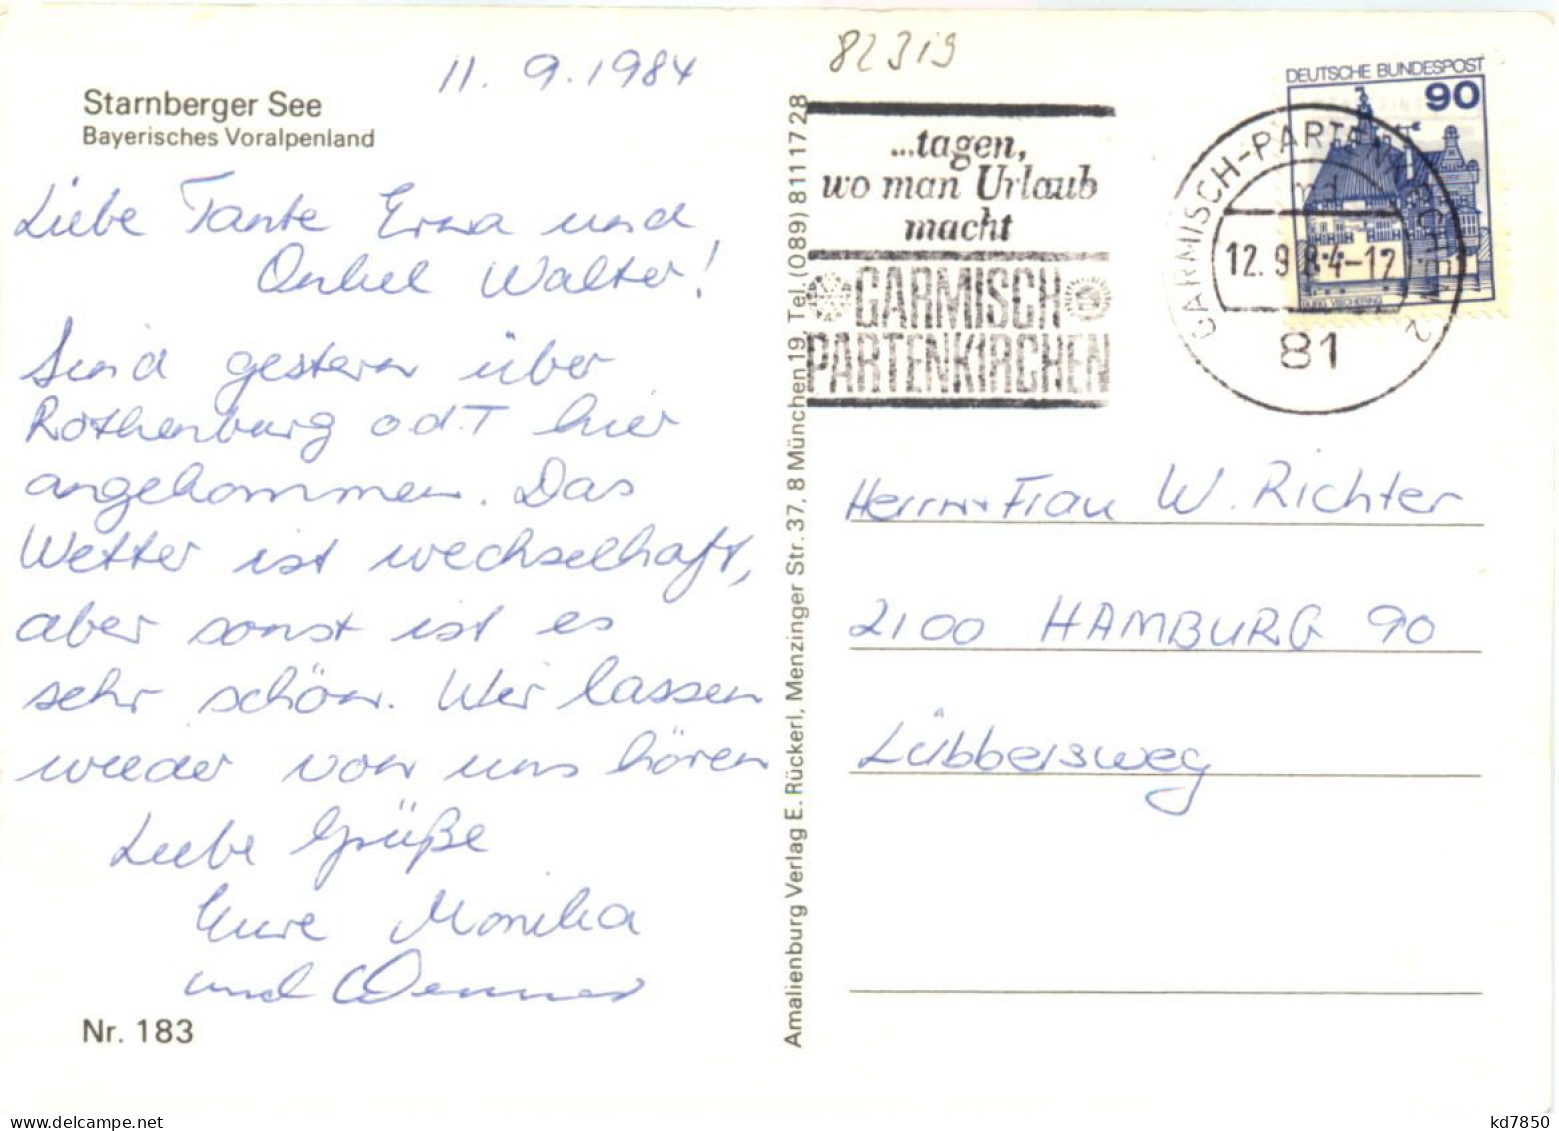 11. 9. 1984
82319
Starnberger See
Bayerisches Voralpenland
Liebe Tante Erna und
Onkel Walter!
Sind gestern über
Rothenburg o d.T hier
angekommen. Das
Wetter ist wechselhaft,
aber sonst ist es
sehr schön. Wir lassen
wieder von uns hören
Liebe Grüße
Eure Monika
und Werner
Nr. 183
Amalienburg Verlag E. Rückerl, Menzinger Str. 37, 8 München 19, Tel. (089) 8111728
...tagen,
wo man Urlaub
macht
GARMISCH
PARTENKIRCHEN
DEUTSCHE BUNDESPOST
90
BURG VISCHERING
GARMISCH-PARTENKIRCHEN 2
md
12. 9. 84-12
81
Herrn + Frau W. Richter
2100 HAMBURG 90
Lübbersweg
kd7850